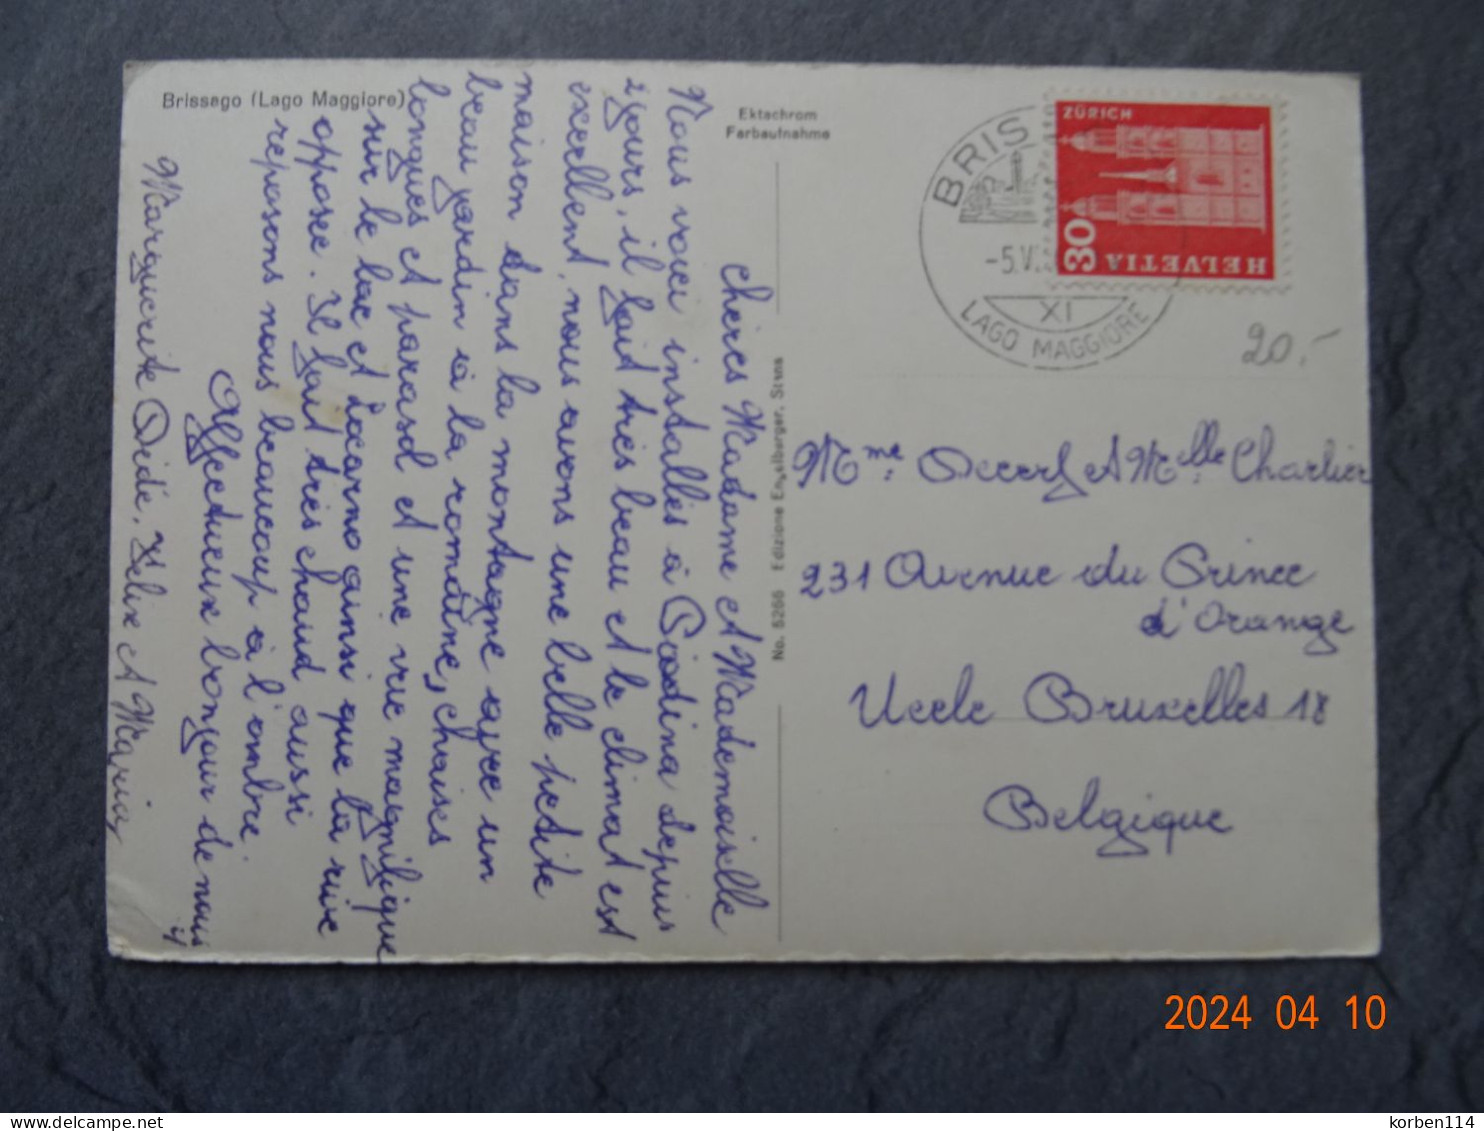 Brissago (Lago Maggiore)
Ektachrom
Farbaufnahme
No. 5256 Edizione Engelberger, Stans
chères Madame et Mademoiselle
Nous voici installés à Piodina depuis
2 jours, il fait très beau et le climat est
excellent, nous avons une belle petite
maison dans la montagne avec un
beau jardin à la romaine, chaises
longues et parasol et une vue magnifique
sur le lac et Locarno ainsi que la rive
opposée. Il fait très chaud aussi
reposons nous beaucoup à l'ombre.
Affectueux bonjour de nous
4
Marguerite Dédé, Félix et Maria
BRIS
-5.V.
XI
LAGO MAGGIORE
ZÜRICH
30
HELVETIA
20.-
Mme. Decerf et Melle. Charlier
231 Avenue du Prince
d'Orange
Uccle Bruxelles 18
Belgique
2024 04 10
korben114